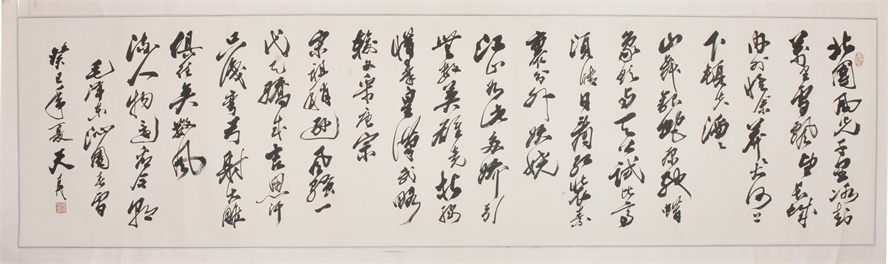 北國風光千里冰封
萬里雪飄望長城
內外惟余莽莽大河上
下頓失滔滔
山舞銀蛇原馳蠟
象欲與天公試比高
須晴日看紅裝素
裹分外妖嬈
江山如此多嬌引
無數英雄競折腰
惜秦皇漢武略
輸文采唐宗
宋祖稍遜風騷一
代天驕成吉思汗
只識彎弓射大雕
俱往矣數風
流人物還看今朝
毛澤東沁園春雪
癸巳年夏天